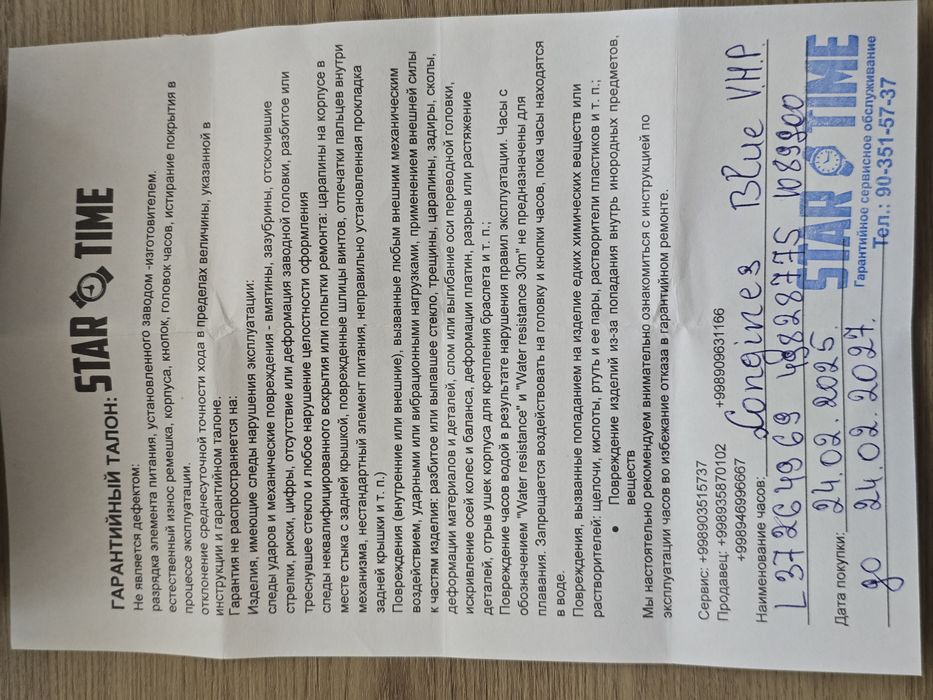 STAR TIME
ГАРАНТИЙНЫЙ ТАЛОН:
Не является дефектом:
разрядка элемента питания, установленного заводом -изготовителем.
естественный износ ремешка, корпуса, кнопок, головок часов, истирание покрытия в
процессе эксплуатации.
отклонение среднесуточной точности хода в пределах величины, указанной в
инструкции и гарантийном талоне.
Гарантия не распространяется на:
Изделия, имеющие следы нарушения эксплуатации:
следы ударов и механические повреждения - вмятины, зазубрины, отскочившие
стрелки, риски, цифры, отсутствие или деформация заводной головки, разбитое или
треснувшее стекло и любое нарушение целостности оформления
следы неквалифицированного вскрытия или попытки ремонта: царапины на корпусе в
месте стыка с задней крышкой, поврежденные шлицы винтов, отпечатки пальцев внутри
механизма, нестандартный элемент питания, неправильно установленная прокладка
задней крышки и т. п.)
Повреждения (внутренние или внешние), вызванные любым внешним механическим
воздействием, ударными или вибрационными нагрузками, применением внешней силы
к частям изделия: разбитое или выпавшее стекло, трещины, царапины, задиры, сколы,
деформации материалов и деталей, слом или выгибание оси переводной головки,
искривление осей колес и баланса, деформации платин, разрыв или растяжение
деталей, отрыв ушек корпуса для крепления браслета и т. п.;
Повреждение часов водой в результате нарушения правил эксплуатации. Часы с
обозначением "Water resistance" и "Water resistance 30m" не предназначены для
плавания. Запрещается воздействовать на головку и кнопки часов, пока часы находятся
в воде.
Повреждения, вызванные попаданием на изделие едких химических веществ или
растворителей: щелочи, кислоты, ртуть и ее пары, растворители пластиков и т. п.;
• Повреждение изделий из-за попадания внутрь инородных предметов,
веществ
Мы настоятельно рекомендуем внимательно ознакомиться с инструкцией по
эксплуатации часов во избежание отказа в гарантийном ремонте.
Сервис: +998903515737
Продавец: +998935870102 +998909631166
+998946996667
Наименование часов: Longines Blue V.H.P
L 3 726 4 9 69 49828775 1089900
Дата покупки: 24.02.2025.
до 24.02.2027.
STAR TIME
Гарантийное сервисное обслуживание
Тел.: 90-351-57-37